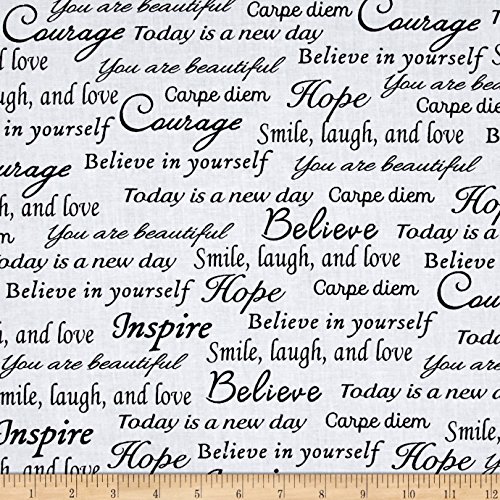 You are beautiful Carpe diem Courage
Courage Today is a new day
and love You are beautiful Believe in yourself
You are beautiful
laugh, and love Carpe diem Hope Carpe
in yourself Courage Smile, laugh, and love
Believe in yourself You are beautiful
Today is a new day Carpe diem
and love You are beautiful Believe Today is a
Today is a new day Smile, laugh, and love Believe in
Believe in yourself Hope Carpe diem Courage
and love Inspire Believe in yourself
You are beautiful Smile, laugh, and love You are
Smile, laugh, and love Believe Today is a new
Today is a new day Carpe diem Smile,
Inspire Believe in yourself
and love Hope You are beautiful
1 2 3 4 5 6 7 8 9 10 11 12